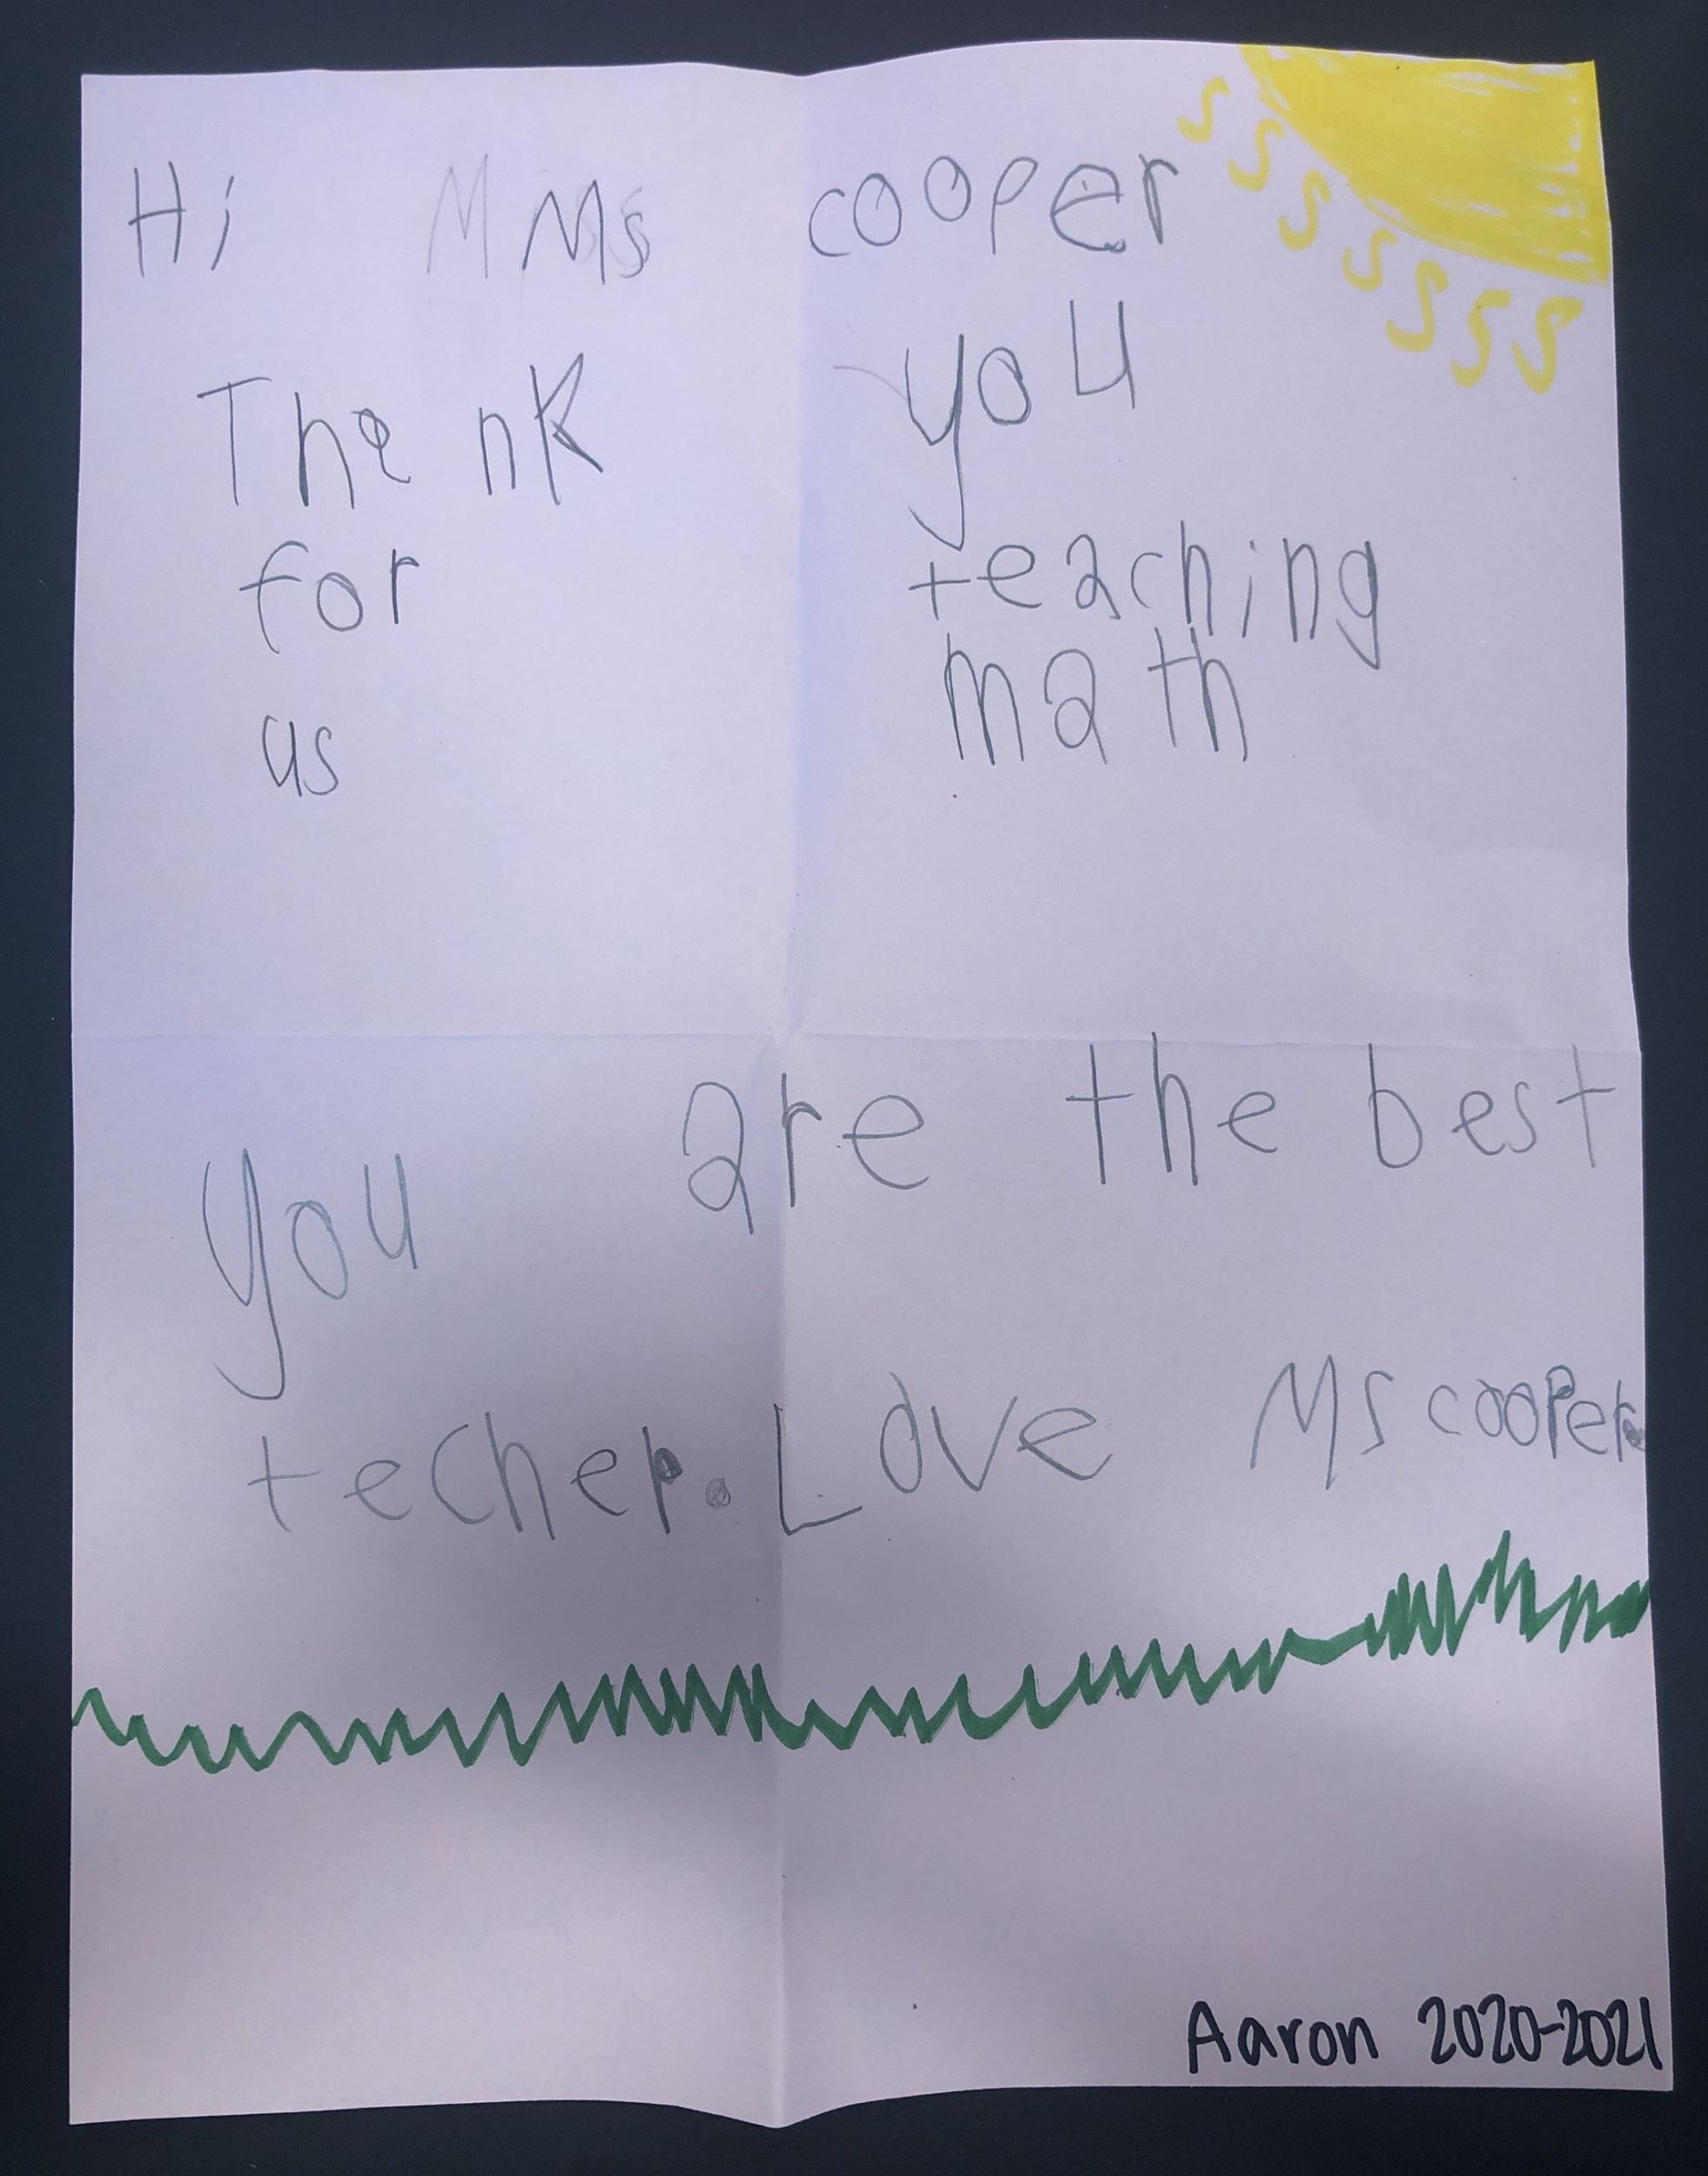 Hi M Ms cooper
Thank you
for teaching
us math
you are the best
techer. Love Ms cooper.
Aaron 2020-2021